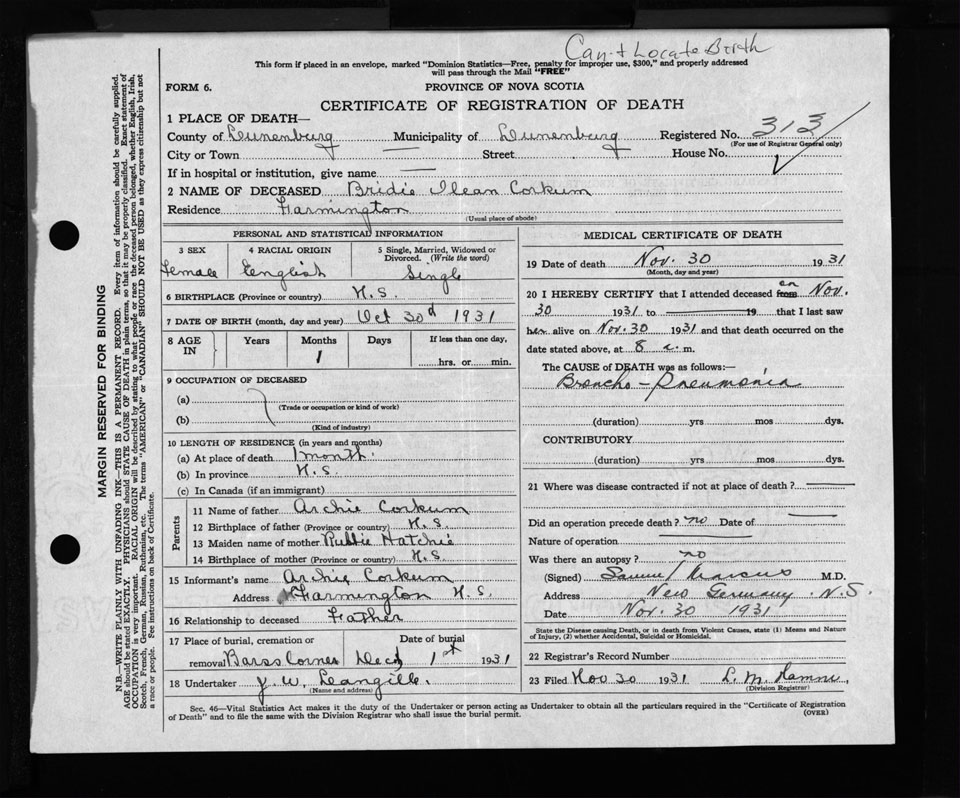 Can't Locate Birth
This form if placed in an envelope, marked "Dominion Statistics—Free, penalty for improper use, $300," and properly addressed
will pass through the Mail "FREE"
FORM 6. PROVINCE OF NOVA SCOTIA
CERTIFICATE OF REGISTRATION OF DEATH
1 PLACE OF DEATH—
County of Lunenburg Municipality of Lunenburg Registered No. 313
(For use of Registrar General only)
City or Town — Street House No.
If in hospital or institution, give name —
2 NAME OF DECEASED Bridie Ilean Corkum
Residence Farmington
(Usual place of abode)
PERSONAL AND STATISTICAL INFORMATION
3 SEX 4 RACIAL ORIGIN 5 Single, Married, Widowed or
Divorced. (Write the word)
Female English Single
6 BIRTHPLACE (Province or country) N.S.
7 DATE OF BIRTH (month, day and year) Oct 30d 1931
8 AGE IN Years Months Days If less than one day,
1 hrs. or min.
9 OCCUPATION OF DECEASED
(a)
(Trade or occupation or kind of work)
(b)
(Kind of industry)
10 LENGTH OF RESIDENCE (in years and months)
(a) At place of death 1 month.
(b) In province N.S.
(c) In Canada (if an immigrant)
Parents
11 Name of father Archie Corkum
12 Birthplace of father (Province or country) N.S.
13 Maiden name of mother Hatchie
14 Birthplace of mother (Province or country) N.S.
15 Informant's name Archie Corkum
Address Farmington N.S.
16 Relationship to deceased Father
17 Place of burial, cremation or Date of burial
removal Barss Corner Dec 1st 1931
18 Undertaker J. W. Langille.
(Name and address)
MEDICAL CERTIFICATE OF DEATH
19 Date of death Nov. 30 1931
(Month, day and year)
20 I HEREBY CERTIFY that I attended deceased from on Nov.
30 1931 to — 19 that I last saw
her alive on Nov. 30 1931 and that death occurred on
date stated above, at 8 a. m.
The CAUSE of DEATH was as follows:—
Broncho-Pneumonia
(duration) yrs mos dys.
CONTRIBUTORY
(duration) yrs mos dys.
21 Where was disease contracted if not at place of death? —
Did an operation precede death? no Date of —
Nature of operation —
Was there an autopsy? no
(Signed) Samuel Marcus M.D.
Address New Germany. N.S.
Date Nov. 30 1931
State the Disease causing Death, or in death from Violent Causes, state (1) Means and Nature
of Injury, (2) whether Accidental, Suicidal or Homicidal.
22 Registrar's Record Number
23 Filed Nov 30 1931 L. M.
(Division Registrar)
Sec. 46—Vital Statistics Act makes it the duty of the Undertaker or person acting as Undertaker to obtain all the particulars required in the "Certificate of Registration
of Death" and to file the same with the Division Registrar who shall issue the burial permit. (OVER)
MARGIN RESERVED FOR BINDING
N.B.—WRITE PLAINLY WITH UNFADING INK—THIS IS A PERMANENT RECORD. Every item of information should be carefully supplied.
AGE should be stated EXACTLY. PHYSICIANS should STATE CAUSE OF DEATH in plain terms, so that it may be properly classified. Exact statement of
OCCUPATION is very important. RACIAL ORIGIN will be described by stating to what people or race the deceased person belonged, whether English, Irish,
Scotch, French, German, Russian, Ruthenian, etc. The terms "AMERICAN" or "CANADIAN" SHOULD NOT BE USED as they express citizenship but not
a race or people. See instructions on back of Certificate.